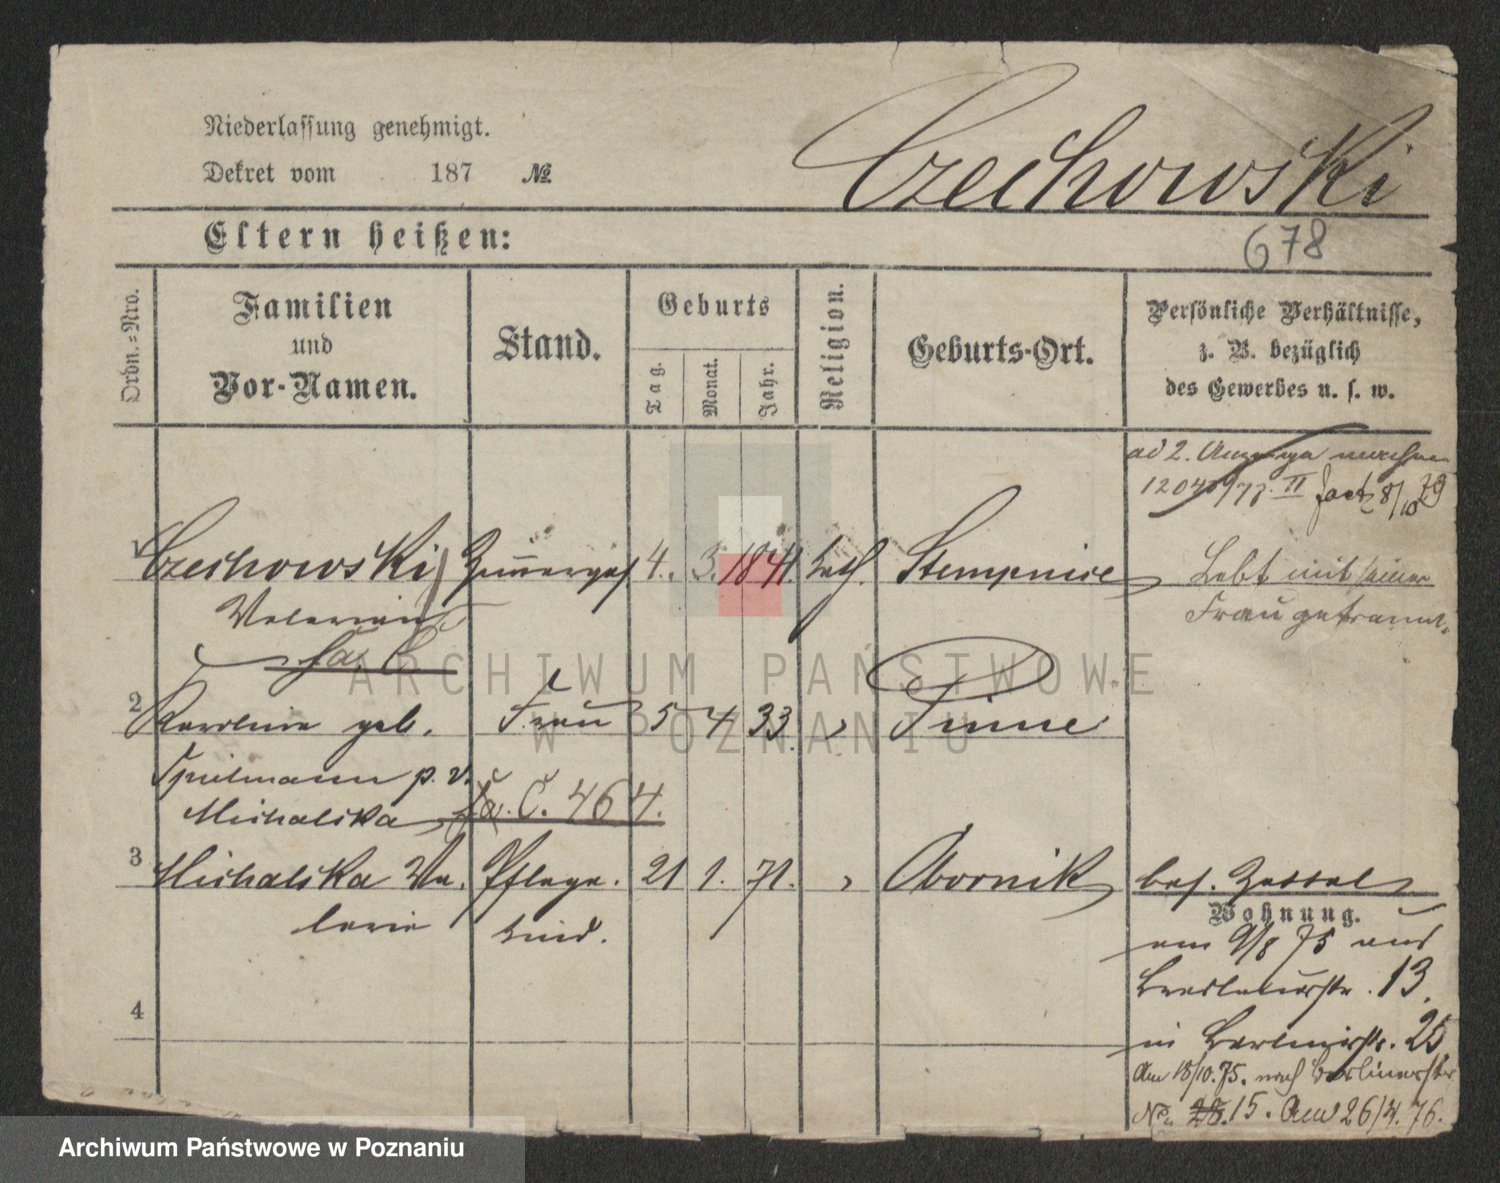 Niederlassung genehmigt.
Dekret vom 187 №
Czechowski
Eltern heißen:
678
Ordn.-Nro.
Familien
und
Vor-Namen.
Stand.
Geburts
Tag.
Monat.
Jahr.
Religion.
Geburts-Ort.
Persönliche Verhältnisse,
z. B. bezüglich
des Gewerbes u. s. w.
ad 2.
8/10 79
1 Czechowski Zimmerges. 4. 3. 1841. kath. Stempnice Lebt mit seiner
Valerian Frau getrennt.
2 Karoline geb. Frau 5 4 33 " Pinne
Spielmann p. v.
Michalska Fa. C. 464.
3 Michalska Va- Pflege- 21 1. 71. " Obornik bes. Zettel
lerie kind.
Wohnung.
am 9/8 75 aus
Breslauerstr. 13.
in Berlinerstr. 25
4
Am 18/10.75. nach Berlinerstr
No. 28. 15. Am 26/4. 76.
ARCHIWUM PAŃSTWOWE
W POZNANIU
Archiwum Państwowe w Poznaniu